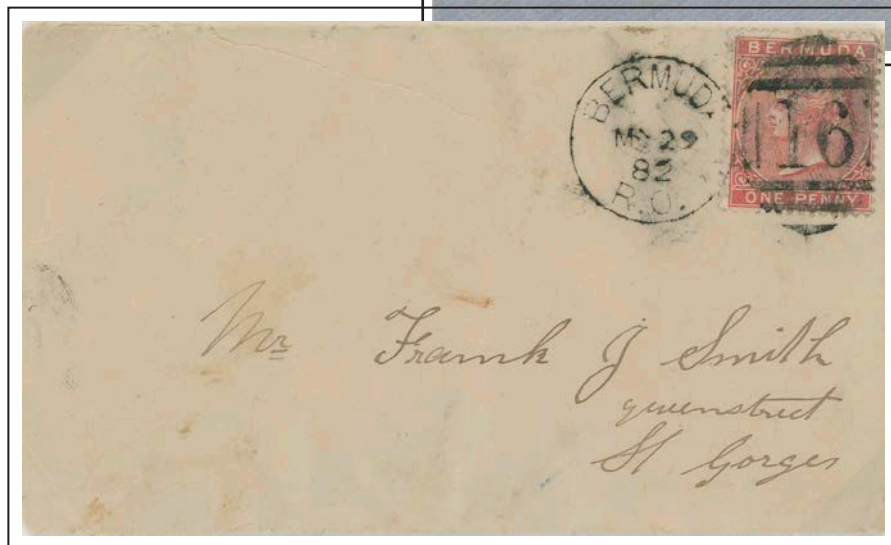 BERMUDA
MR 29
82
R.O.
BERMUDA
16
ONE PENNY
Mr Frank J Smith
queenstreet
St Gorges